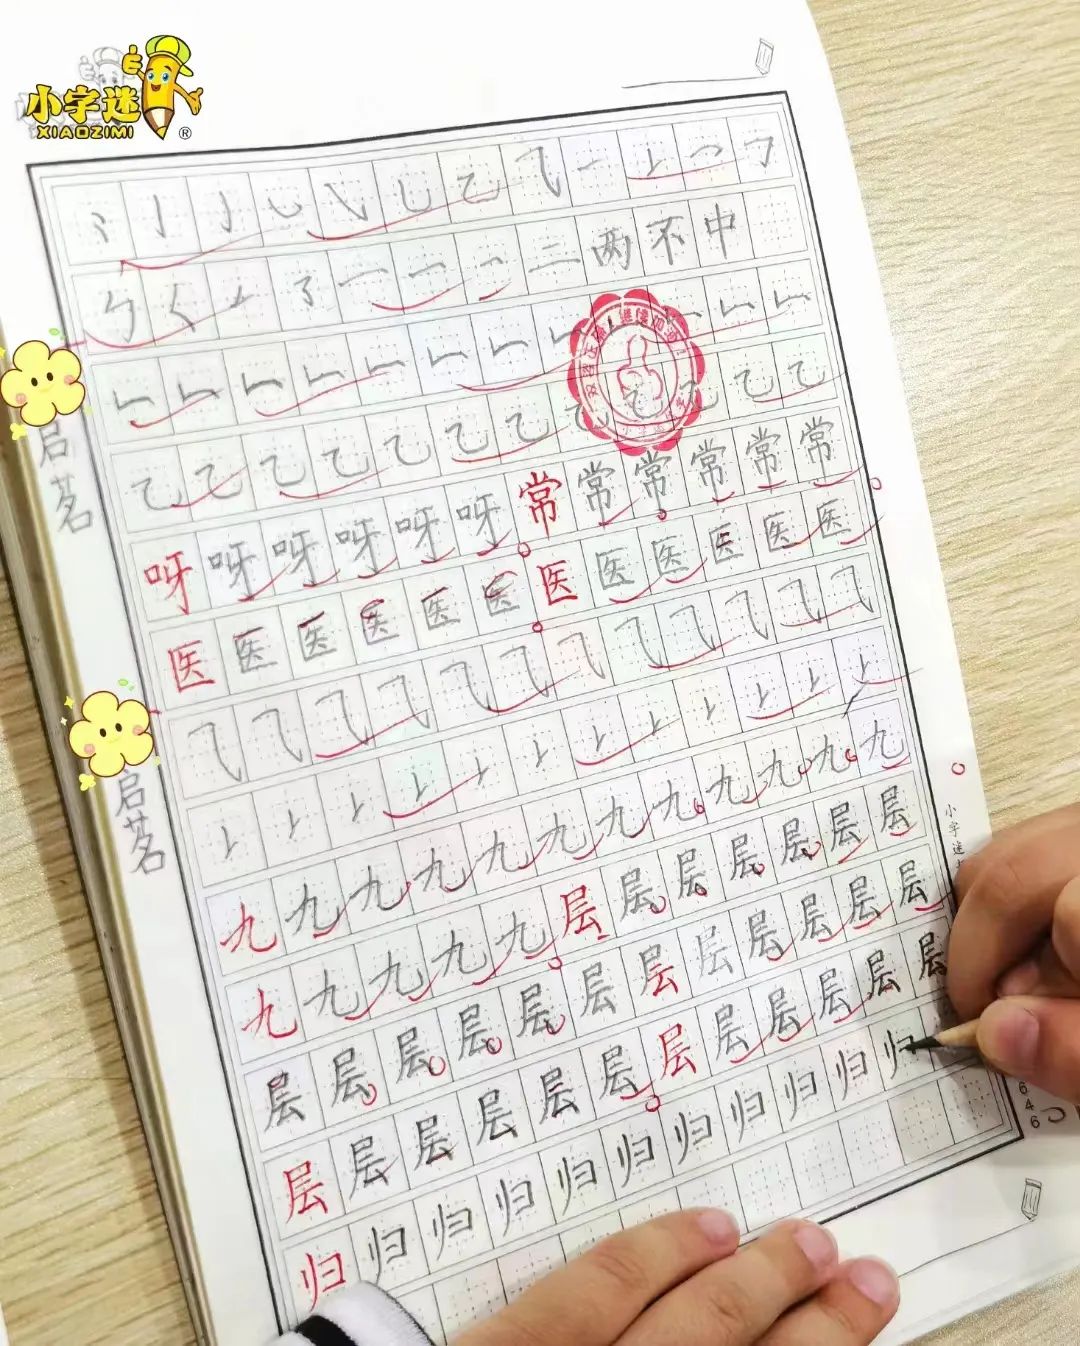 小字迷
XIAOZIMI
®
二 两 不 中
乙 乙 乙 乙 乙 乙 乙 乙 乙 乙 乙
呀 呀 呀 呀 呀 呀 常 常 常 常 常 常
医 医 医 医 医 医 医 医 医 医 医 医
九 九 九 九 九 九 九 九 九 九 九
九 九 九 九 九 层 层 层 层 层 层 层
层 层 层 层 层 层 层 层 层 层 层 层
层 层 层 层 层 层 层 层 层 层 层 层
归 归 归 归 归 归 归 归 归 归 归
启茗
启茗
小字迷
646